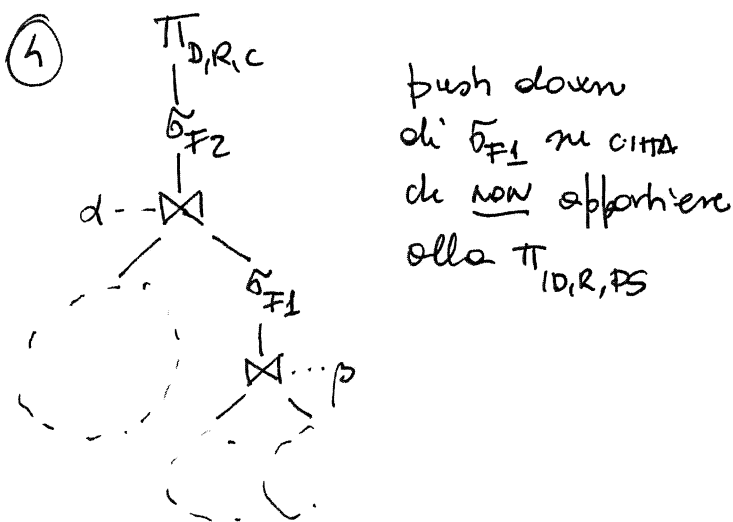 4
π D,R,C
σ F2
α
σ F1
β
push down
di σ F1 su CITTA
che NON appartiene
alla π ID,R,PS